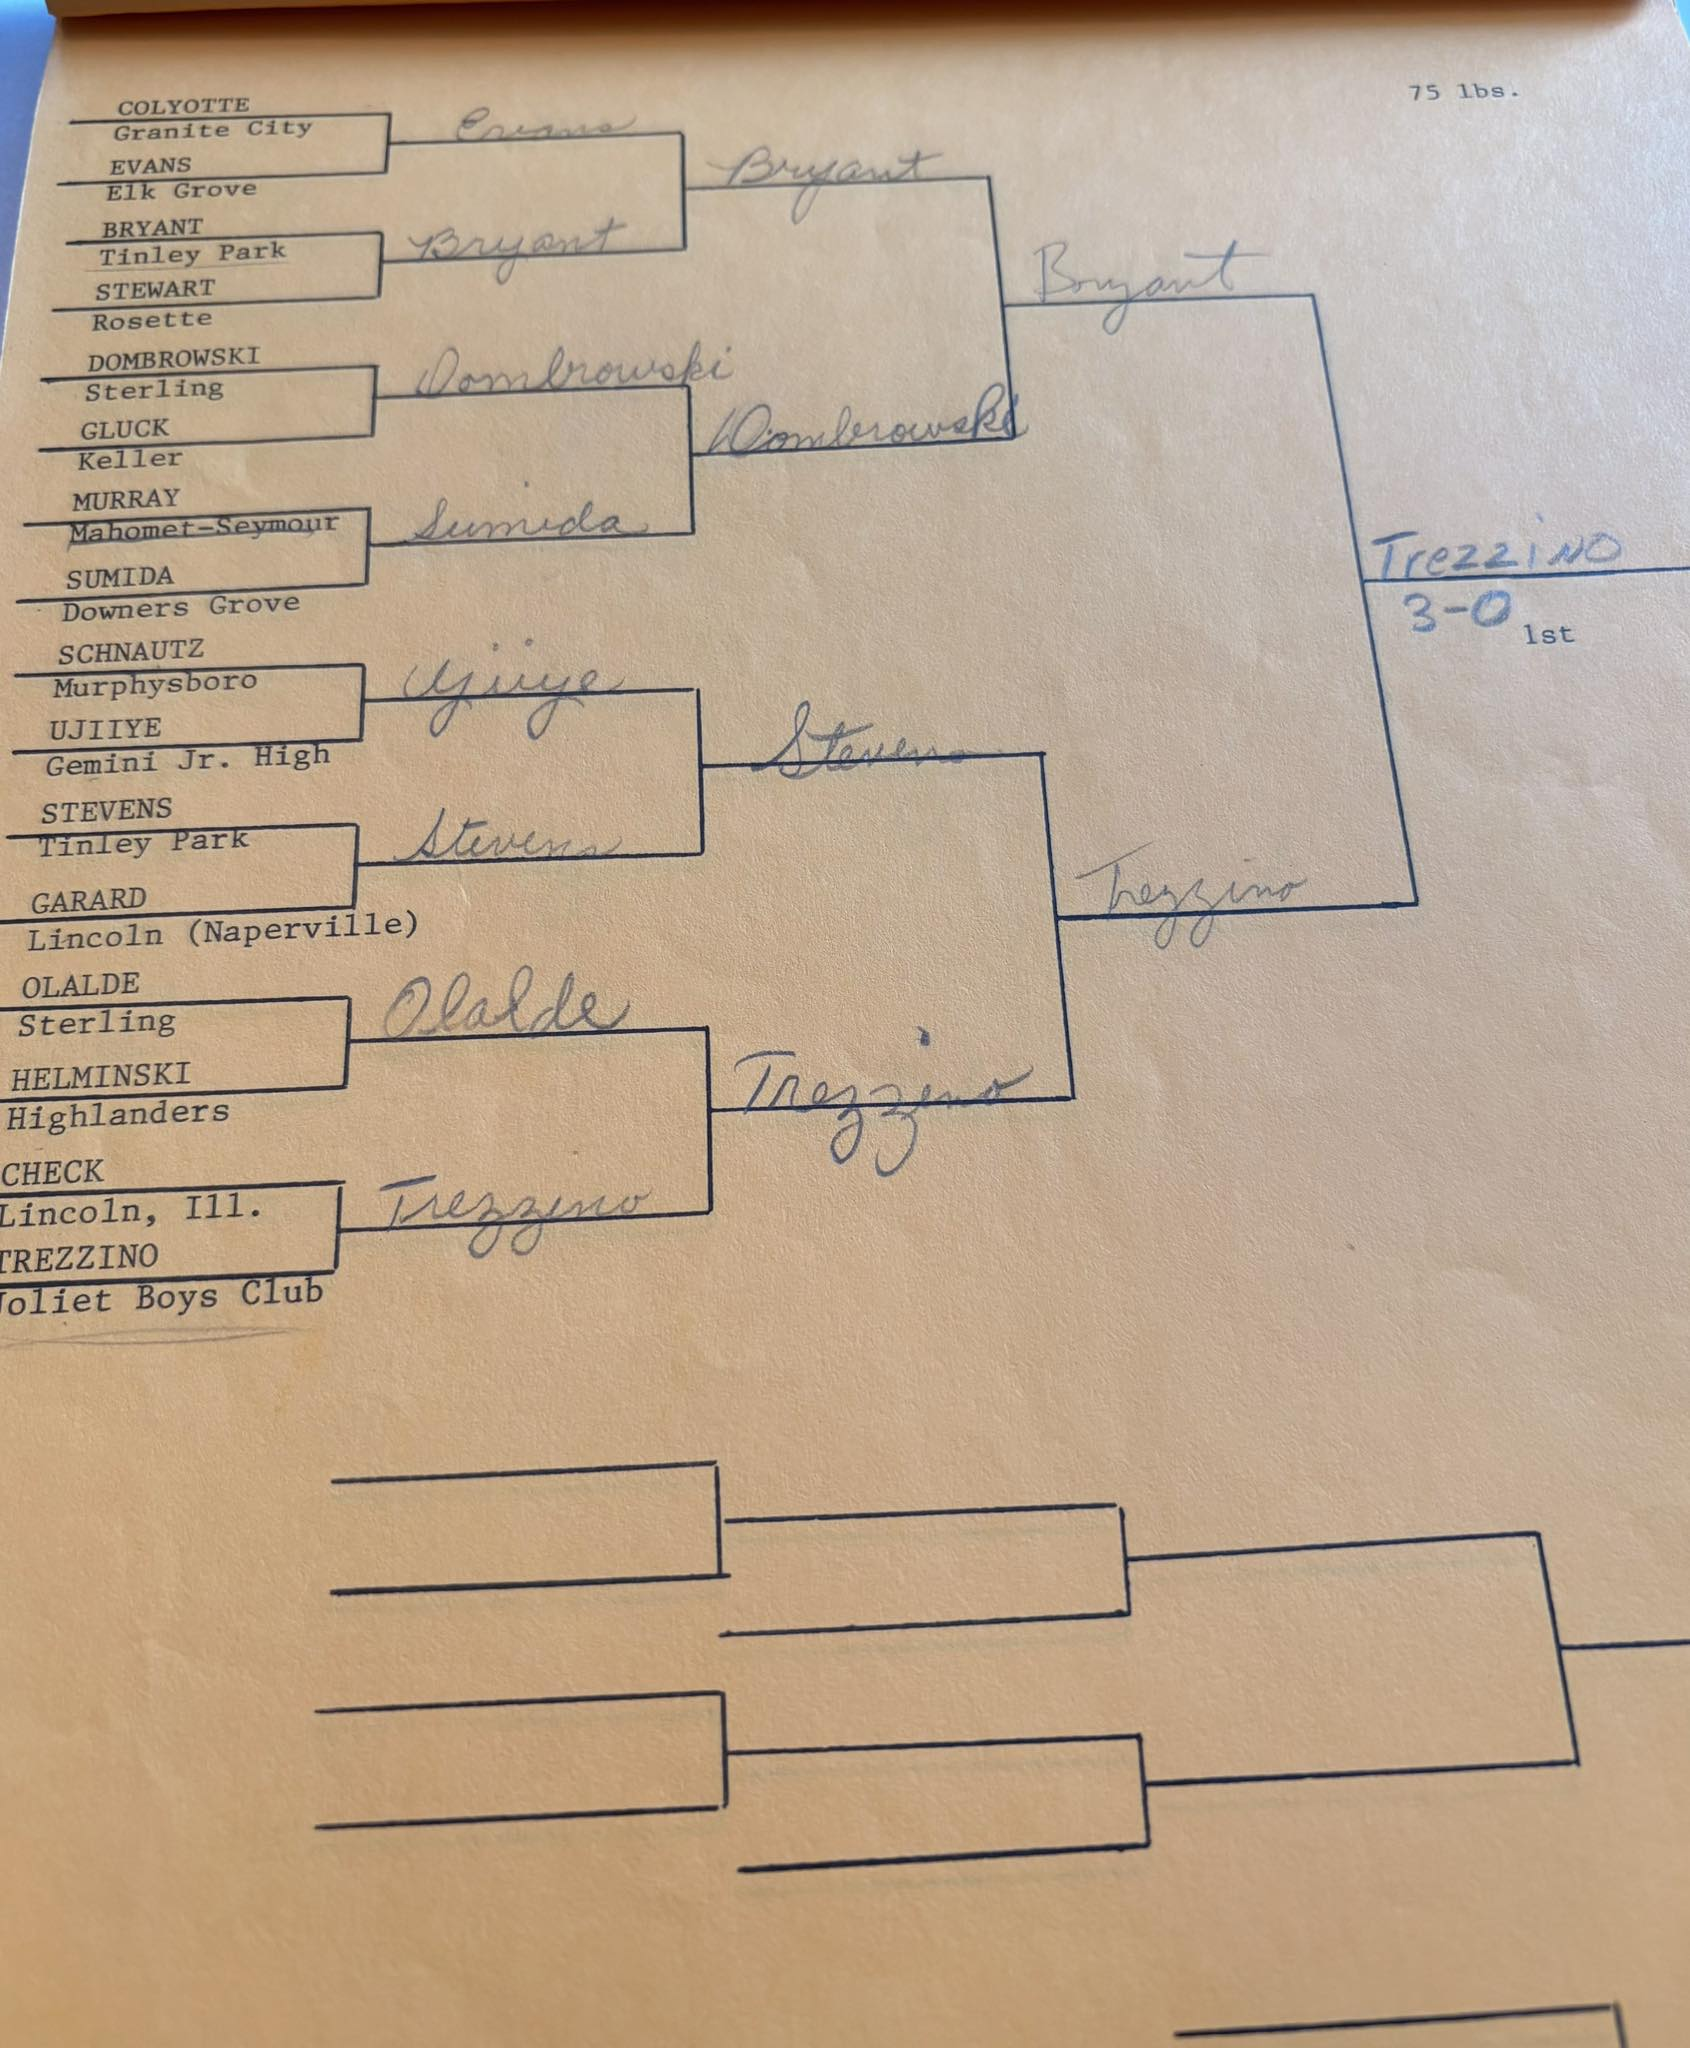 75 lbs.
COLYOTTE
Granite City
EVANS
Elk Grove
BRYANT
Tinley Park
STEWART
Rosette
DOMBROWSKI
Sterling
GLUCK
Keller
MURRAY
Mahomet-Seymour
SUMIDA
Downers Grove
SCHNAUTZ
Murphysboro
UJIIYE
Gemini Jr. High
STEVENS
Tinley Park
GARARD
Lincoln (Naperville)
OLALDE
Sterling
HELMINSKI
Highlanders
CHECK
Lincoln, Ill.
TREZZINO
Joliet Boys Club
Evans
Bryant
Dombrowski
Sumida
Ujiiye
Stevens
Olalde
Trezzino
Bryant
Dombrowski
Stevens
Trezzino
Bryant
Trezzino
TrezziNO
3-0
1st